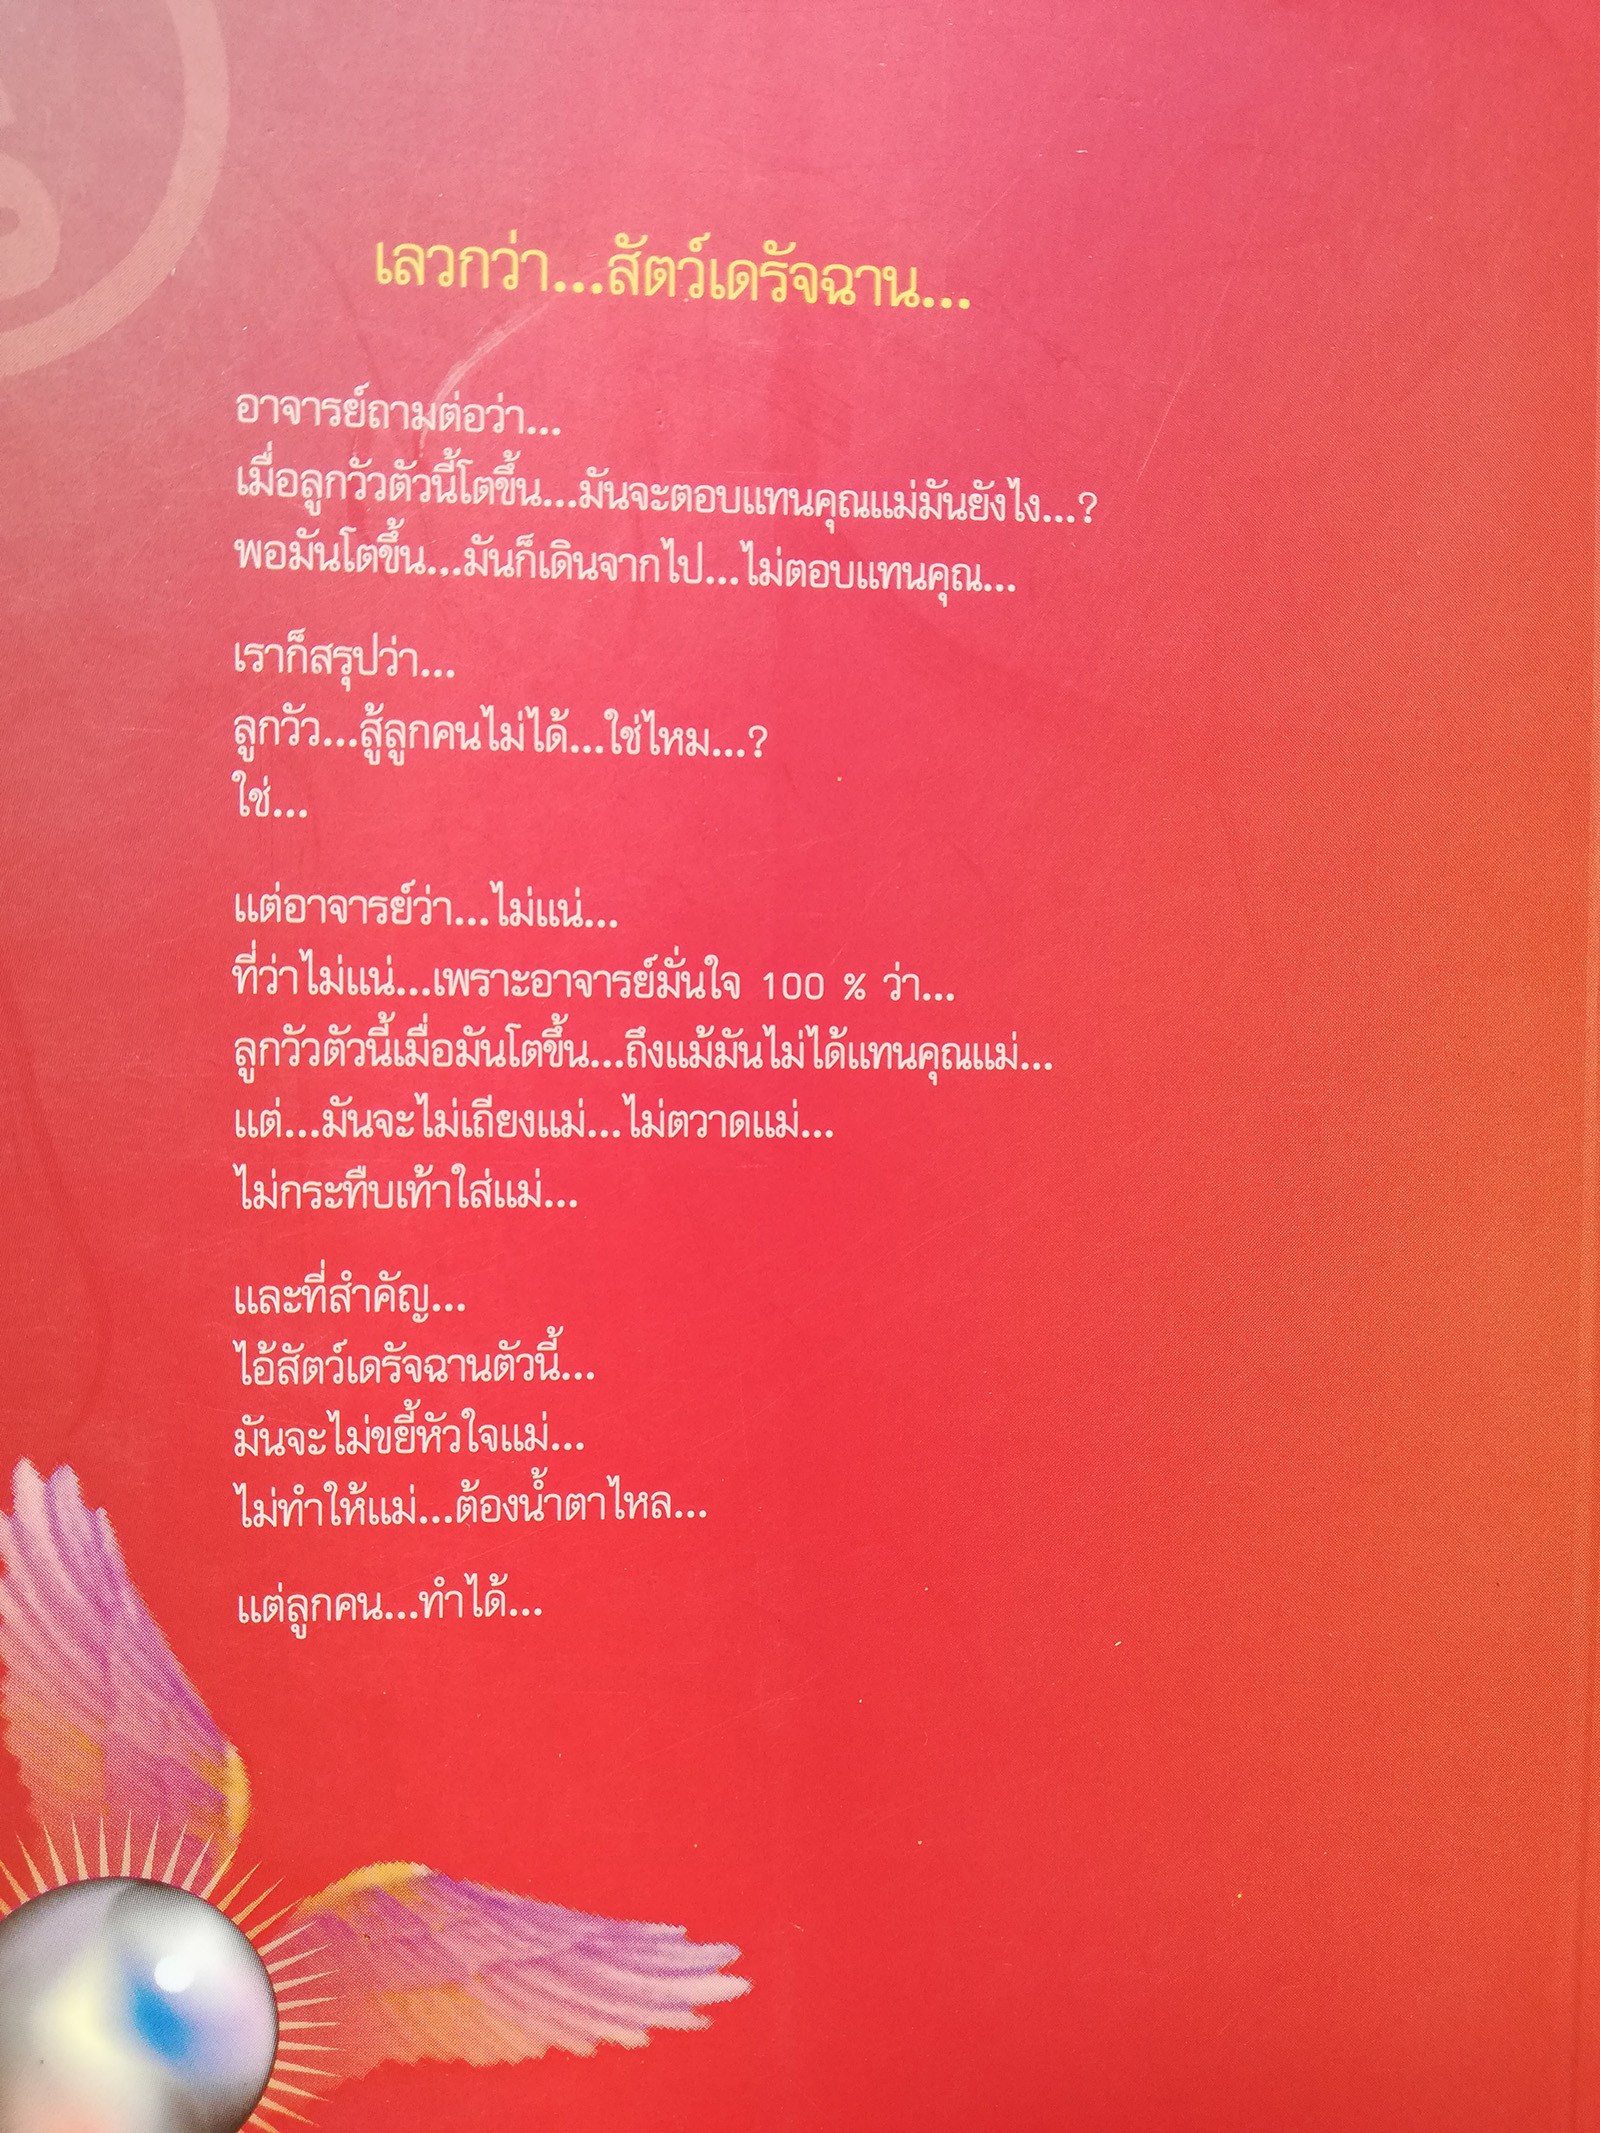 เลวกว่า...สัตว์เดรัจฉาน...
อาจารย์ถามต่อว่า...
เมื่อลูกวัวตัวนี้โตขึ้น...มันจะตอบแทนคุณแม่มันยังไง...?
พอมันโตขึ้น...มันก็เดินจากไป...ไม่ตอบแทนคุณ...
เราก็สรุปว่า...
ลูกวัว...สู้ลูกคนไม่ได้...ใช่ไหม...?
ใช่...
แต่อาจารย์ว่า...ไม่แน่...
ที่ว่าไม่แน่...เพราะอาจารย์มั่นใจ 100 % ว่า...
ลูกวัวตัวนี้เมื่อมันโตขึ้น...ถึงแม้มันไม่ได้แทนคุณแม่...
แต่...มันจะไม่เถียงแม่...ไม่ตวาดแม่...
ไม่กระทืบเท้าใส่แม่...
และที่สำคัญ...
ไอ้สัตว์เดรัจฉานตัวนี้...
มันจะไม่ขยี้หัวใจแม่...
ไม่ทำให้แม่...ต้องน้ำตาไหล...
แต่ลูกคน...ทำได้...